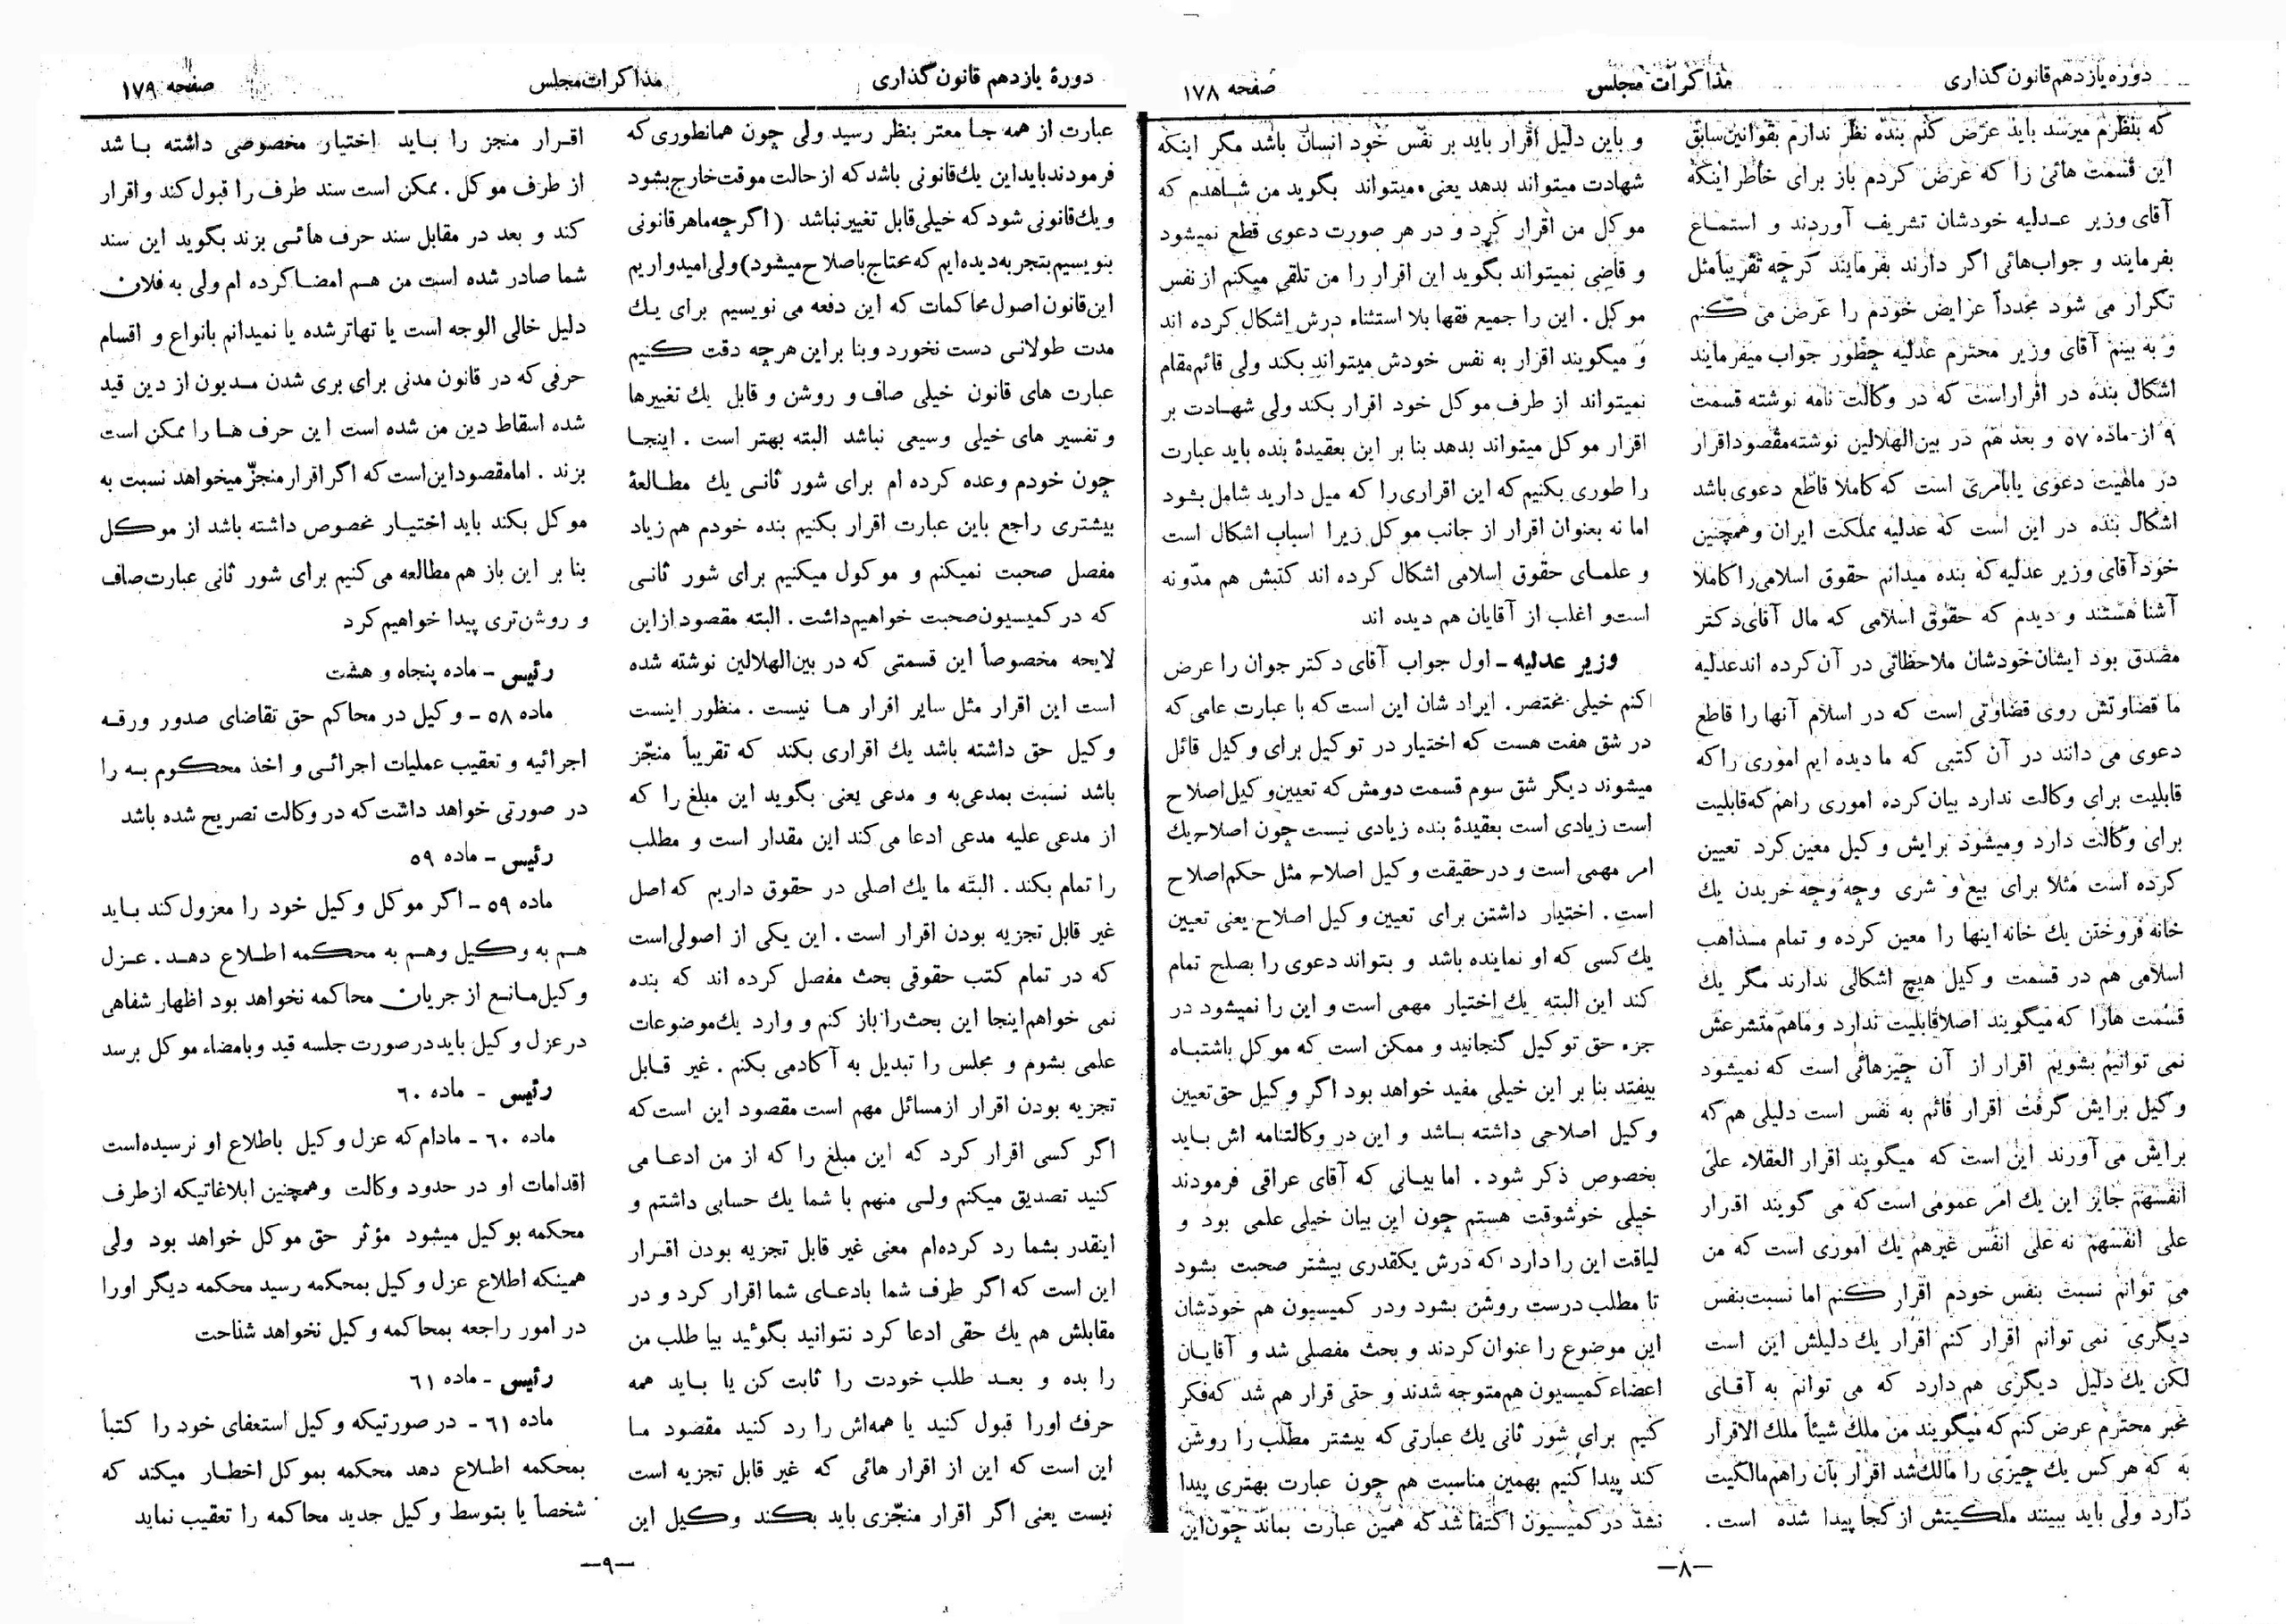 دوره یازدهم قانون گذاری
مذاکرات مجلس
صفحه ۱۷۸
که بنظرم میرسد باید عرض کنم بنده نظر ندارم بقوانین سابق
این قسمت هائی را که عرض کردم باز برای خاطر اینکه
آقای وزیر عدلیه خودشان تشریف آوردند و استماع
بفرمایند و جواب‌هائی اگر دارند بفرمایند گرچه تقریباً مثل
تکرار می شود مجدداً عرایض خودم را عرض می کنم
و به بینم آقای وزیر محترم عدلیه چطور جواب میفرمایند
اشکال بنده در اقرار است که در وکالت نامه نوشته قسمت
۹ از ماده ۵۷ و بعد هم در بین‌الهلالین نوشته مقصود اقرار
در ماهیت دعوی یا بامری است که کاملا قاطع دعوی باشد
اشکال بنده در این است که عدلیه مملکت ایران و همچنین
خود آقای وزیر عدلیه که بنده میدانم حقوق اسلامی را کاملا
آشنا هستند و دیدم که حقوق اسلامی که مال آقای دکتر
مصدق بود ایشان خودشان ملاحظاتی در آن کرده اند عدلیه
ما قضاوتش روی قضاوتی است که در اسلام آنها را قاطع
دعوی می دانند در آن کتبی که ما دیده ایم اموری را که
قابلیت برای وکالت ندارد بیان کرده اموری را هم که قابلیت
برای وکالت دارد و میشود برایش وکیل معین کرد تعیین
کرده است مثلا برای بیع و شری و چه و چه خریدن یك
خانه فروختن یك خانه اینها را معین کرده و تمام مذاهب
اسلامی هم در قسمت وکیل هیچ اشکالی ندارند مگر یك
قسمت هارا که میگویند اصلا قابلیت ندارد و ماهم متشرعش
نمی توانیم بشویم اقرار از آن چیزهائی است که نمیشود
وکیل برایش گرفت اقرار قائم به نفس است دلیلی هم که
برایش می آورند این است که میگویند اقرار العقلاء علی
انفسهم جایز این یك امر عمومی است که می گویند اقرار
علی انفسهم نه علی انفس غیرهم یك اموری است که من
می توانم نسبت بنفس خودم اقرار کنم اما نسبت بنفس
دیگری نمی توانم اقرار کنم اقرار یك دلیلش این است
لکن یك دلیل دیگری هم دارد که می توانم به آقای
مخبر محترم عرض کنم که میگویند من ملك شیئاً ملك الاقرار
به که هر کس یك چیزی را مالك شد اقرار بآن را هم مالکیت
دارد ولی باید ببینند ملکیتش از کجا پیدا شده است .
و باین دلیل اقرار باید بر نفس خود انسان باشد مگر اینکه
شهادت میتواند بدهد یعنی میتواند بگوید من شاهدم که
موکل من اقرار کرد و در هر صورت دعوی قطع نمیشود
و قاضی نمیتواند بگوید این اقرار را من تلقی میکنم از نفس
موکل . این را جمیع فقها بلا استثناء درش اشکال کرده اند
و میگویند اقرار به نفس خودش میتواند بکند ولی قائم مقام
نمیتواند از طرف موکل خود اقرار بکند ولی شهادت بر
اقرار موکل میتواند بدهد بنا بر این بعقیدهٔ بنده باید عبارت
را طوری بکنیم که این اقراری را که میل دارید شامل بشود
اما نه بعنوان اقرار از جانب موکل زیرا اسباب اشکال است
و علمای حقوق اسلامی اشکال کرده اند کتبش هم مدّونه
است و اغلب از آقایان هم دیده اند
وزیر عدلیه ـ اول جواب آقای دکتر جوان را عرض
کنم خیلی مختصر . ایراد شان این است که با عبارت عامی که
در شق هفت هست که اختیار در توکیل برای وکیل قائل
میشوند دیگر شق سوم قسمت دومش که تعیین وکیل اصلاح
است زیادی است بعقیدهٔ بنده زیادی نیست چون اصلاح یك
امر مهمی است و در حقیقت وکیل اصلاح مثل حکم اصلاح
است . اختیار داشتن برای تعیین وکیل اصلاح یعنی تعیین
یك کسی که او نماینده باشد و بتواند دعوی را بصلح تمام
کند این البته یك اختیار مهمی است و این را نمیشود در
جزء حق توکیل گنجانید و ممکن است که موکل باشتباه
بیفتد بنا بر این خیلی مفید خواهد بود اگر وکیل حق تعیین
وکیل اصلاحی داشته باشد و این در وکالتنامه اش باید
بخصوص ذکر شود . اما بیانی که آقای عراقی فرمودند
خیلی خوشوقت هستم چون این بیان خیلی علمی بود و
لیاقت این را دارد که درش یکقدری بیشتر صحبت بشود
تا مطلب درست روشن بشود و در کمیسیون هم خودشان
این موضوع را عنوان کردند و بحث مفصلی شد و آقایان
اعضاء کمیسیون هم متوجه شدند و حتی قرار هم شد که فکر
کنیم برای شور ثانی یك عبارتی که بیشتر مطلب را روشن
کند پیدا کنیم بهمین مناسبت هم چون عبارت بهتری پیدا
نشد در کمیسیون اکتفا شد که همین عبارت بماند چون این
ـ۸ـ
دورهٔ یازدهم قانون گذاری
مذاکرات مجلس
صفحه ۱۷۹
عبارت از همه جا معتبر بنظر رسید ولی چون همانطوری که
فرمودند باید این یك قانونی باشد که از حالت موقت خارج بشود
و یك قانونی شود که خیلی قابل تغییر نباشد (اگر چه ما هر قانونی
بنویسیم بتجربه دیده ایم که محتاج باصلاح میشود) ولی امیدواریم
این قانون اصول محاکمات که این دفعه می نویسیم برای یك
مدت طولانی دست نخورد و بنا بر این هر چه دقت کنیم
عبارت های قانون خیلی صاف و روشن و قابل یك تغییرها
و تفسیر های خیلی وسیعی نباشد البته بهتر است . اینجا
چون خودم وعده کرده ام برای شور ثانی یك مطالعهٔ
بیشتری راجع باین عبارت اقرار بکنیم بنده خودم هم زیاد
مفصل صحبت نمیکنم و موکول میکنیم برای شور ثانی
که در کمیسیون صحبت خواهیم داشت . البته مقصود از این
لایحه مخصوصاً این قسمتی که در بین‌الهلالین نوشته شده
است این اقرار مثل سایر اقرار ها نیست . منظور اینست
وکیل حق داشته باشد یك اقراری بکند که تقریباً منجّز
باشد نسبت بمدعی‌به و مدعی یعنی بگوید این مبلغ را که
از مدعی علیه مدعی ادعا می کند این مقدار است و مطلب
را تمام بکند . البته ما یك اصلی در حقوق داریم که اصل
غیر قابل تجزیه بودن اقرار است . این یکی از اصولی است
که در تمام کتب حقوقی بحث مفصل کرده اند که بنده
نمی خواهم اینجا این بحث را باز کنم و وارد یك موضوعات
علمی بشوم و مجلس را تبدیل به آکادمی بکنم . غیر قابل
تجزیه بودن اقرار از مسائل مهم است مقصود این است که
اگر کسی اقرار کرد که این مبلغ را که از من ادعا می
کنید تصدیق میکنم ولی منهم با شما یك حسابی داشتم و
اینقدر بشما رد کرده‌ام معنی غیر قابل تجزیه بودن اقرار
این است که اگر طرف شما بادعای شما اقرار کرد و در
مقابلش هم یك حقی ادعا کرد نتوانید بگوئید بیا طلب من
را بده و بعد طلب خودت را ثابت کن یا باید همه
حرف اورا قبول کنید یا همه‌اش را رد کنید مقصود ما
این است که این از اقرار هائی که غیر قابل تجزیه است
نیست یعنی اگر اقرار منجّزی باید بکند وکیل این
اقرار منجز را باید اختیار مخصوصی داشته باشد
از طرف موکل . ممکن است سند طرف را قبول کند و اقرار
کند و بعد در مقابل سند حرف هائی بزند بگوید این سند
شما صادر شده است من هم امضا کرده ام ولی به فلان
دلیل خالی الوجه است یا تهاتر شده یا نمیدانم بانواع و اقسام
حرفی که در قانون مدنی برای بری شدن مدیون از دین قید
شده اسقاط دین من شده است این حرف ها را ممکن است
بزند . اما مقصود این است که اگر اقرار منجزّ میخواهد نسبت به
موکل بکند باید اختیار مخصوص داشته باشد از موکل
بنا بر این باز هم مطالعه می کنیم برای شور ثانی عبارت صاف
و روشن‌تری پیدا خواهیم کرد
رئیس ـ ماده پنجاه و هشت
ماده ۵۸ ـ وکیل در محاکم حق تقاضای صدور ورقه
اجرائیه و تعقیب عملیات اجرائی و اخذ محکوم به را
در صورتی خواهد داشت که در وکالت تصریح شده باشد
رئیس ـ ماده ۵۹
ماده ۵۹ ـ اگر موکل وکیل خود را معزول کند باید
هم به وکیل و هم به محکمه اطلاع دهد . عزل
وکیل مانع از جریان محاکمه نخواهد بود اظهار شفاهی
در عزل وکیل باید در صورت جلسه قید و بامضاء موکل برسد
رئیس ـ ماده ٦٠
ماده ٦٠ ـ مادام که عزل وکیل باطلاع او نرسیده است
اقدامات او در حدود وکالت و همچنین ابلاغاتیکه از طرف
محکمه بوکیل میشود مؤثر حق موکل خواهد بود ولی
همینکه اطلاع عزل وکیل بمحکمه رسید محکمه دیگر اورا
در امور راجعه بمحاکمه وکیل نخواهد شناخت
رئیس ـ ماده ٦۱
ماده ٦۱ ـ در صورتیکه وکیل استعفای خود را کتباً
بمحکمه اطلاع دهد محکمه بموکل اخطار میکند که
شخصاً یا بتوسط وکیل جدید محاکمه را تعقیب نماید
ـ۹ـ